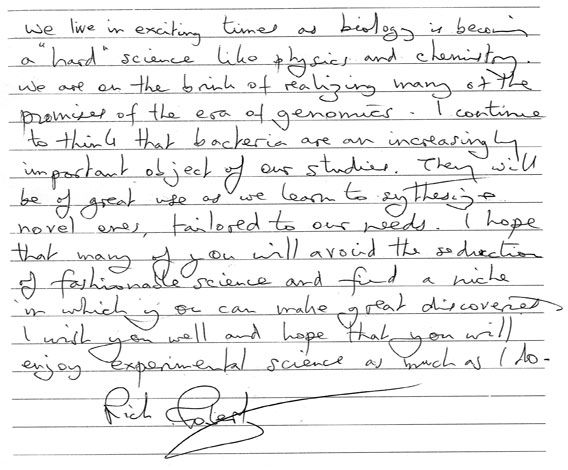 We live in exciting times as biology is becoming
a "hard" science like physics and chemistry.
We are on the brink of realizing many of the
promises of the era of genomics. I continue
to think that bacteria are an increasingly
important object of our studies. They will
be of great use as we learn to sythesize
novel ones, tailored to our needs. I hope
that many of you will avoid the seduction
of fashionable science and find a niche
in which you can make great discoveries.
I wish you well and hope that you will
enjoy experimental science as much as I do.
Rich Roberts